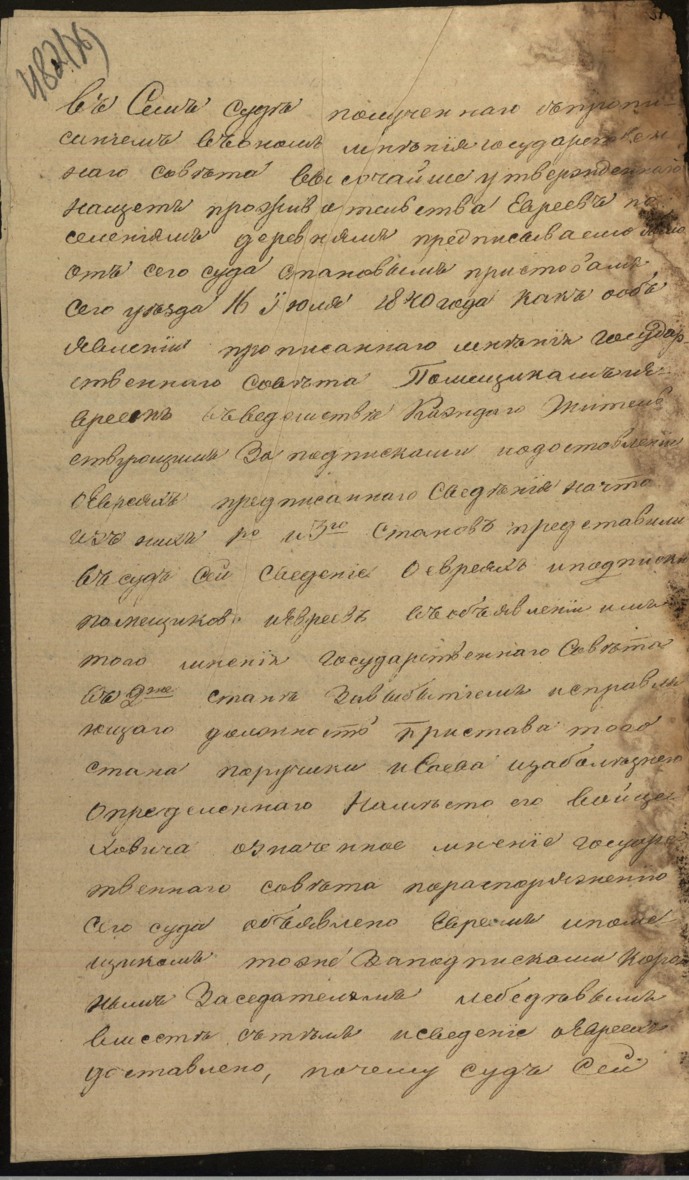 482(76)
въ Семъ судѣ полученнаго съ пропи-
саніемъ въ ономъ мнѣнія государствен
наго совѣта Высочайше утвержденнаго
нащетъ прожив отельства Евреевъ по
селеніямъ деревнямъ предписываемо было
отъ сего суда становымъ приставамъ
сего уѣзда 16 Іюля 1840 года какъ объ
явленіи прописаннаго мнѣнія Государ-
ственнаго Совѣта Помещикамъ
Евреемъ въ ведомствѣ Каждаго Жител
ствующимъ За подписками и о доставленіи
о Евреяхъ предписаннаго Сведѣнія на что
изъ нихъ 1го и 3го Становъ представили
въ судъ Сей Сведеніе о евреяхъ и подписки
помещиков и Евреевъ въ объявленіи имъ
того мненія государственнаго Совѣта
въ 2мъ станѣ За выбытіемъ исправля
ющаго должность Пристава того
стана поручика Исаева и за болѣзнею
определеннаго На мѣсто его Войце
ховича означенное мненіе государ
ственнаго совѣта по распоряженію
сего суда объявлено Евреямъ и поме
щикамъ тоже За подписками
нымъ Заседателямъ лебедевымъ
вместѣ съ тѣмъ и сведеніе о Евреяхъ
доставлено, почему судъ Сей